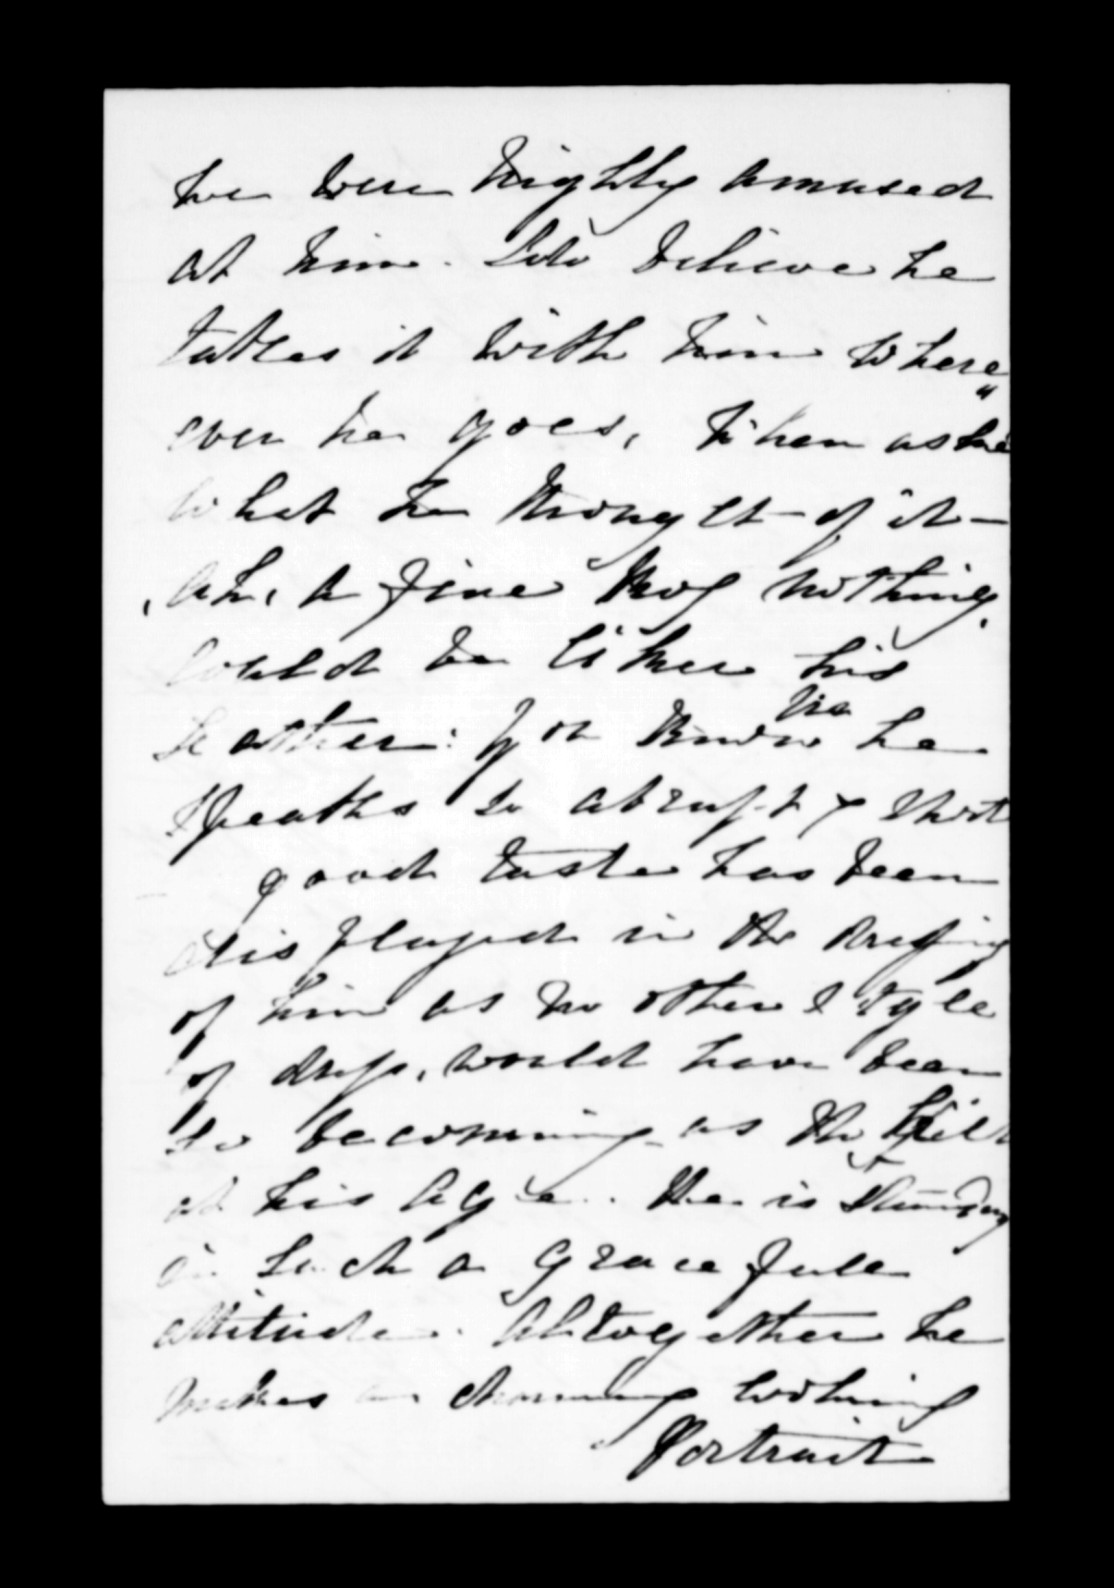 We were highly amused
at him. I do believe he
takes it with him where
ever he goes, When asked
what he thought of it -
, Ah, a fine thing nothing,
could be liker his
Father: you know
he
speaks so abrupt & short
good taste has been
displayed in the dressing
of him as no other style
of dress, would have been
so becoming as the kilt
at his age. He is standing
in such a graceful
attitude. Altogether he
makes a charming looking
Portrait